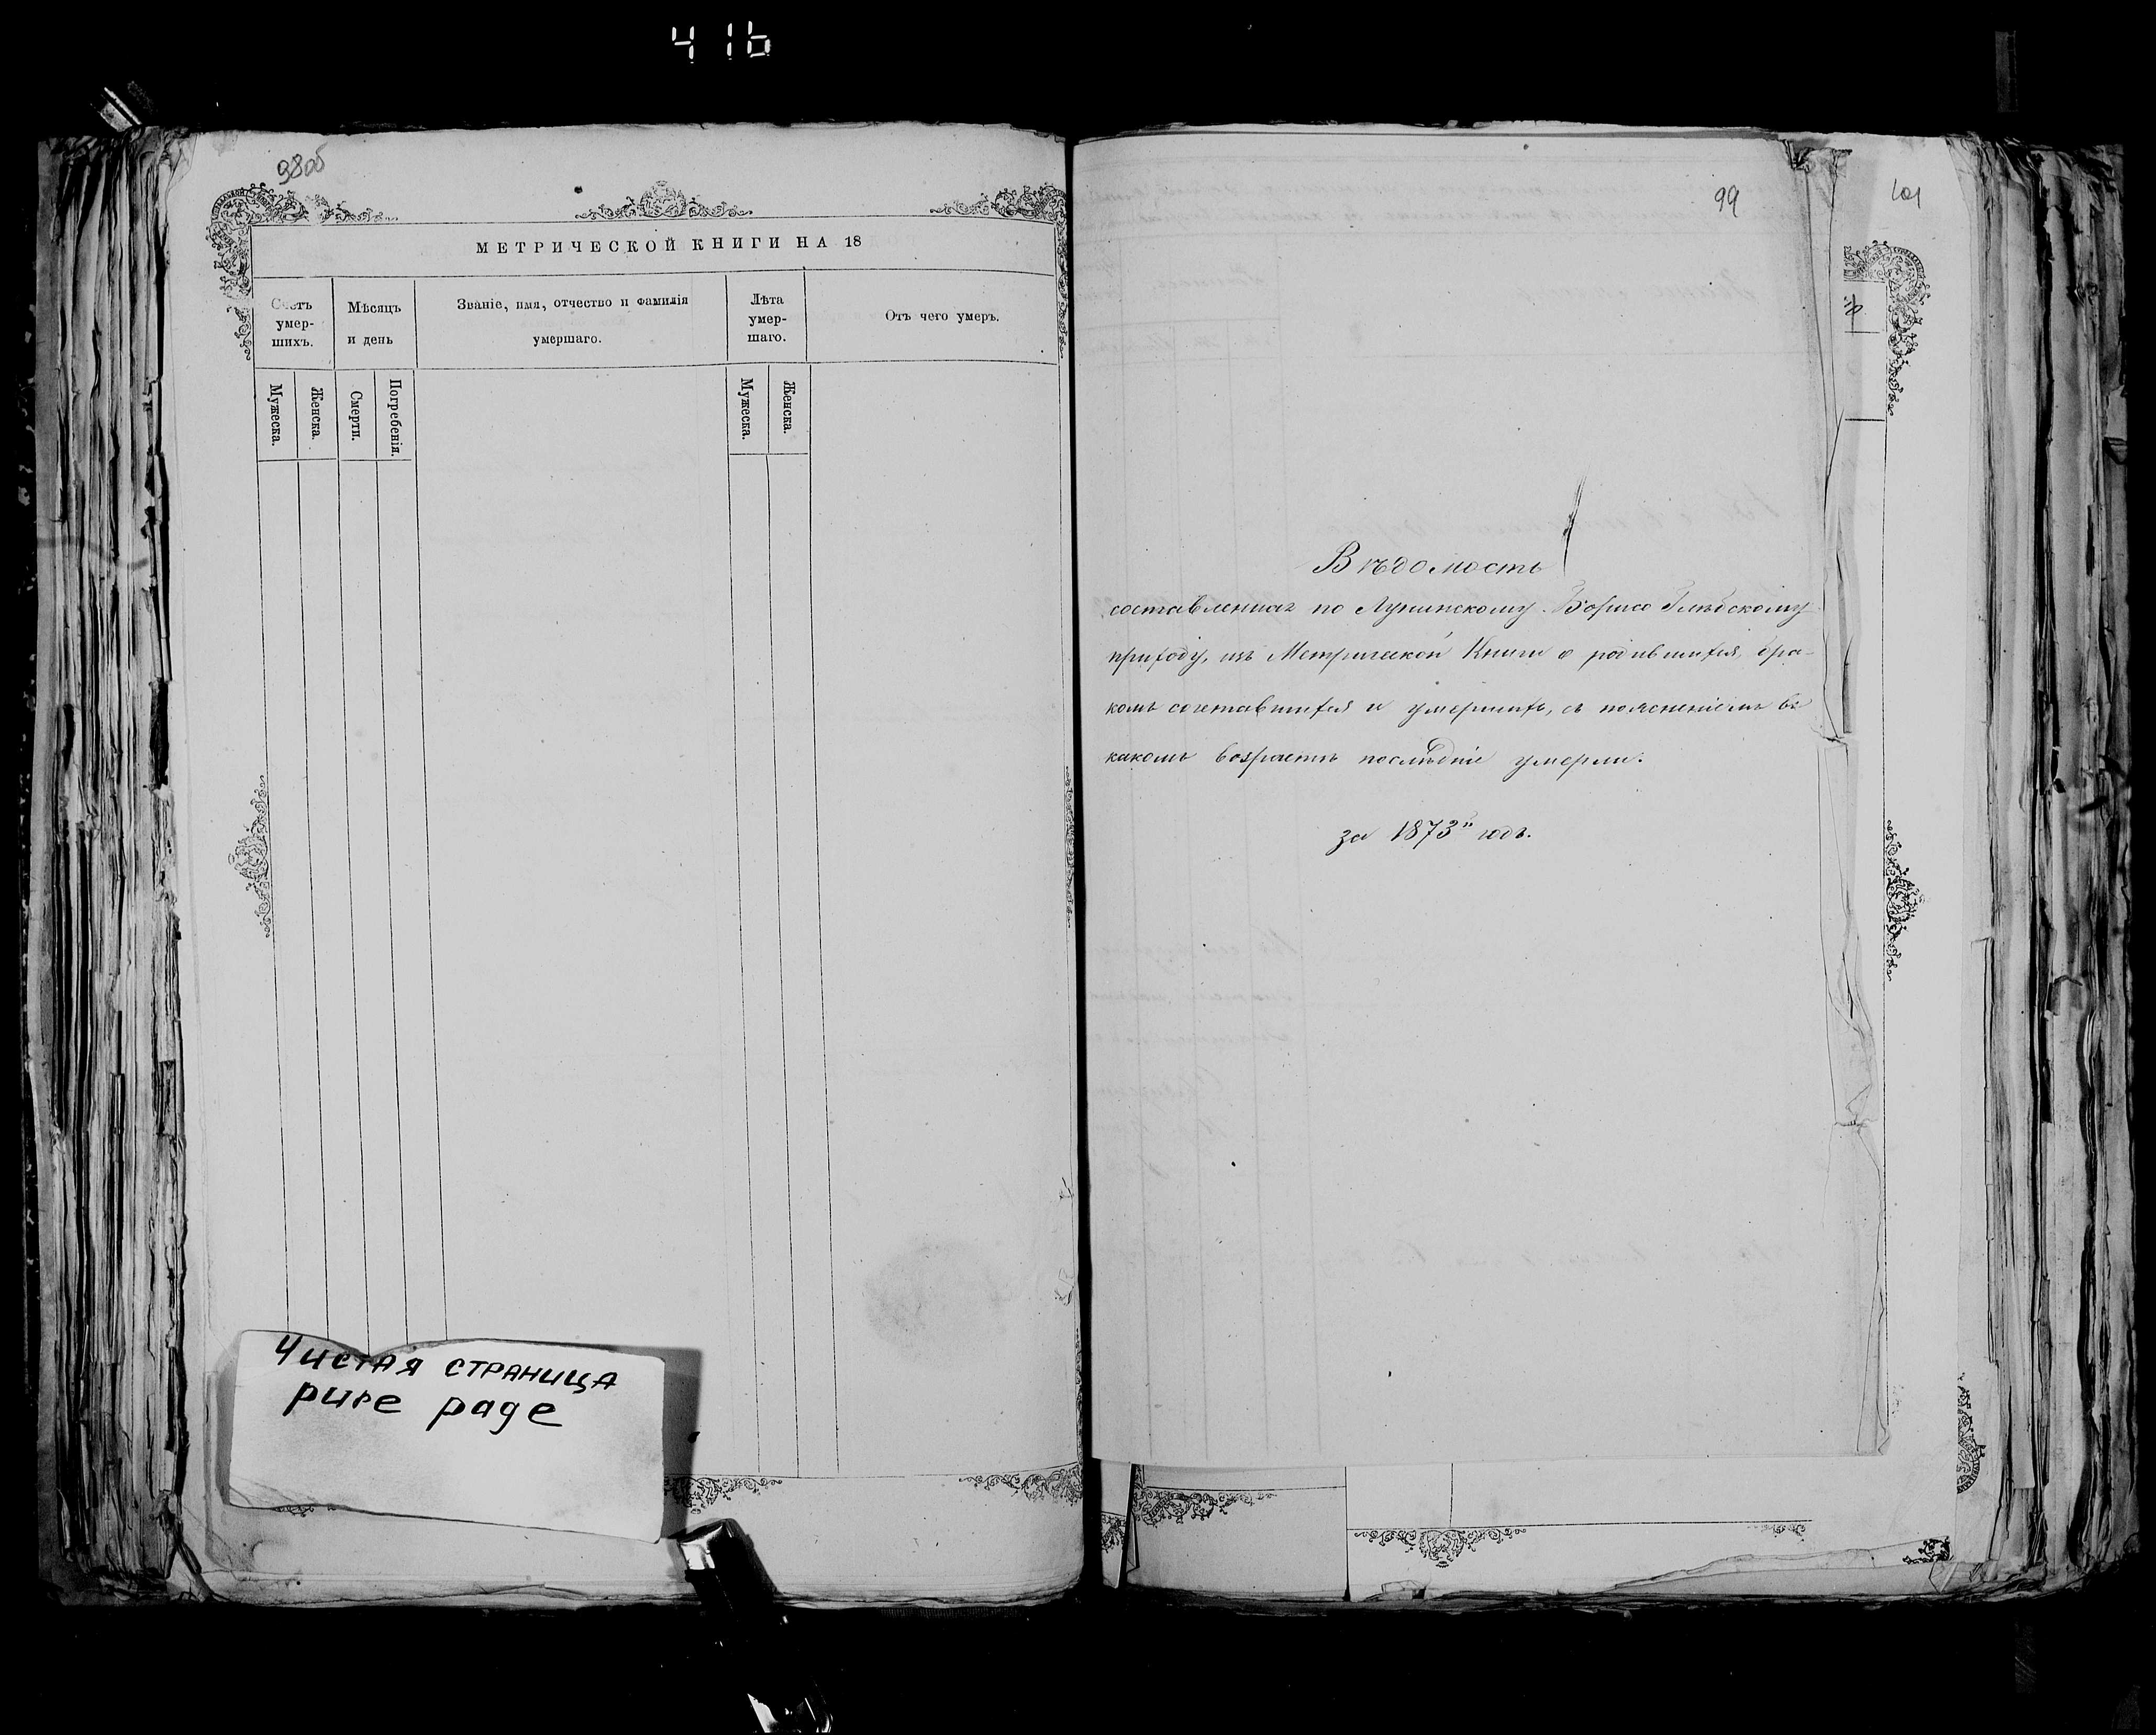 416
98об
МЕТРИЧЕСКОЙ КНИГИ НА 18
Счетъ умер-шихъ.
Мѣсяцъ и день
Званіе, имя, отчество и фамилія умершаго.
Лѣта умер-шаго.
Отъ чего умеръ.
Мужеска.
Женска.
Смерти.
Погребенія.
Мужеска.
Женска.
Чистая страница
pure page
99
101
Вѣдомость
составленная по Лунинскому Борисо Глѣбскому
приходу, изъ Метрической Книги о родившихся, бра-
комъ сочетавшихся и умершихъ, съ поясненіемъ въ
какомъ возрастѣ послѣдніе умерли.
за 1873й годъ.